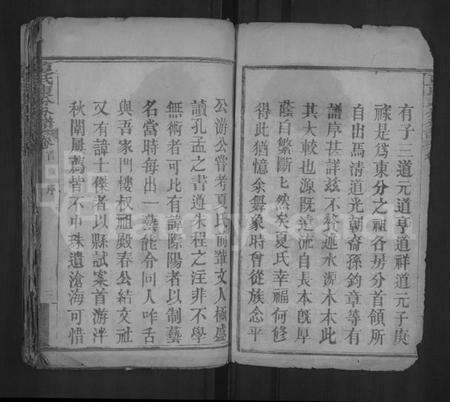 有子三道元道亨道祥道元子庚
祿是爲東分之祖各房分首領所
自出馬清道光朝裔孫鈞章等有
譜序甚詳茲不贅邇永源木本此
其大較也源既遠流自長本既厚
蔭自繁斷匕然矣夏氏幸福何修
得此猶憶余舞象時曾從族念平
公游公嘗考夏氏前輩文人極盛
讀孔孟之書遵朱程之注非不學
無術者可比有諱際陽者以制藝
名當時每出一藝能令同人咋舌
與吾家門樓校祖殿春公結文社
又有諱士傑者以縣試案首游泮
秋闈屢薦皆不中珠遺滄海可惜
氏東分譜卷首 序